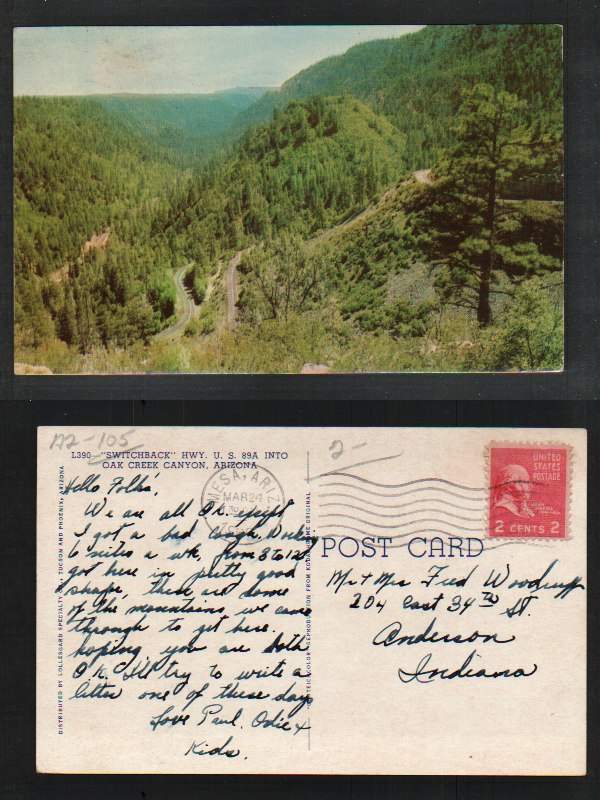 172-105
2-
L390—"SWITCHBACK" HWY. U. S. 89A INTO
OAK CREEK CANYON, ARIZONA
Hello Folks',
We are all O.K. except
I got a bad cough. Working
6 nites a wk, from 3 to 12
got here in pretty good
shape, these are some
of the mountains we came
through to get here.
hoping you are both
O.K. I'll try to write a
letter one of these days
Love Paul. Odie +
Kids.
DISTRIBUTED BY LOLLESGARD SPECIALTY CO., TUCSON AND PHOENIX, ARIZONA
COLOR REPRODUCTION FROM KODACHROME ORIGINAL
MESA, ARIZ
MAR 24
UNITED
STATES
POSTAGE
2 CENTS 2
POST CARD
Mr + Mrs Fred Woodruff
204 East 34th St.
Anderson
Indiana